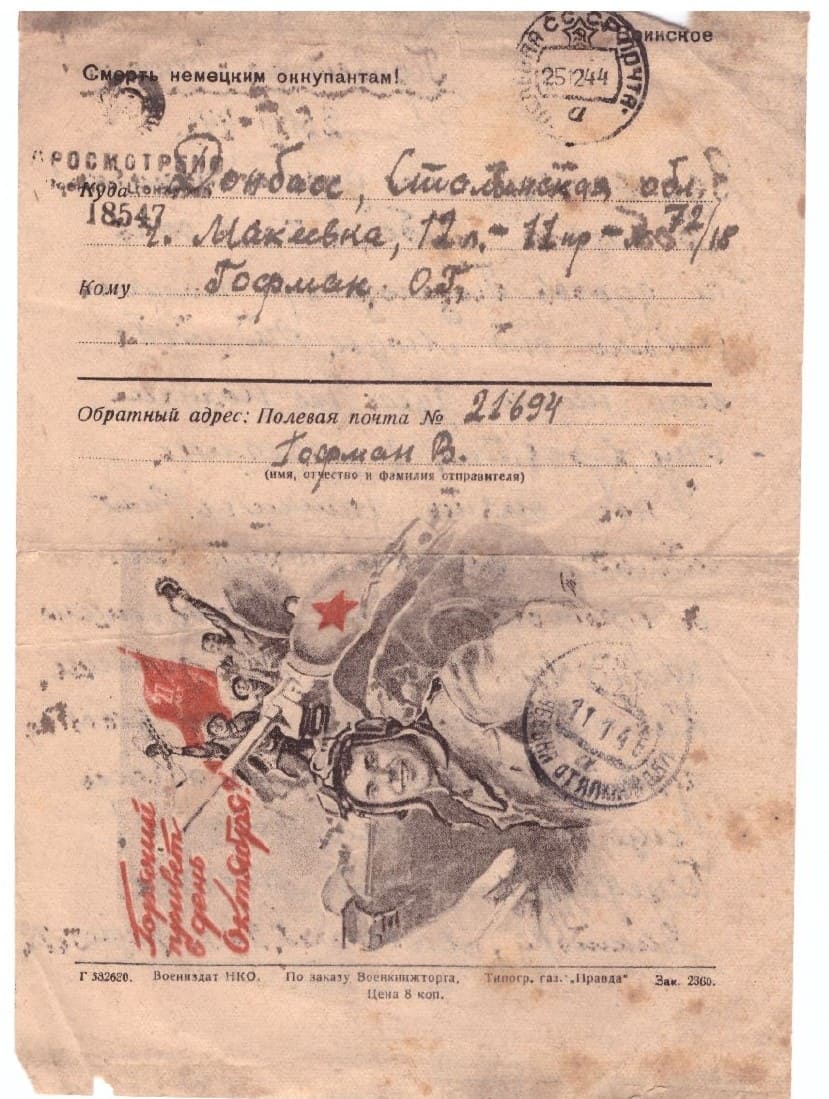 Смерть немецким оккупантам!
ПОЛЕВАЯ ПОЧТА
СССР
25 12 44
ПРОСМОТРЕНО
18547
Куда Донбасс, Сталинская обл.
г. Макеевка, 12 л. - 11 пр - 72/18
Кому Гофман О.Г.
Обратный адрес: Полевая почта № 21694
Гофман В.
(имя, отчество и фамилия отправителя)
27
Горячий
привет
в день
Октября!
11 1 45
Г 582620. Воениздат НКО. По заказу Военкнижторга. Типогр. газ. „Правда“ Зак. 2360.
Цена 8 коп.